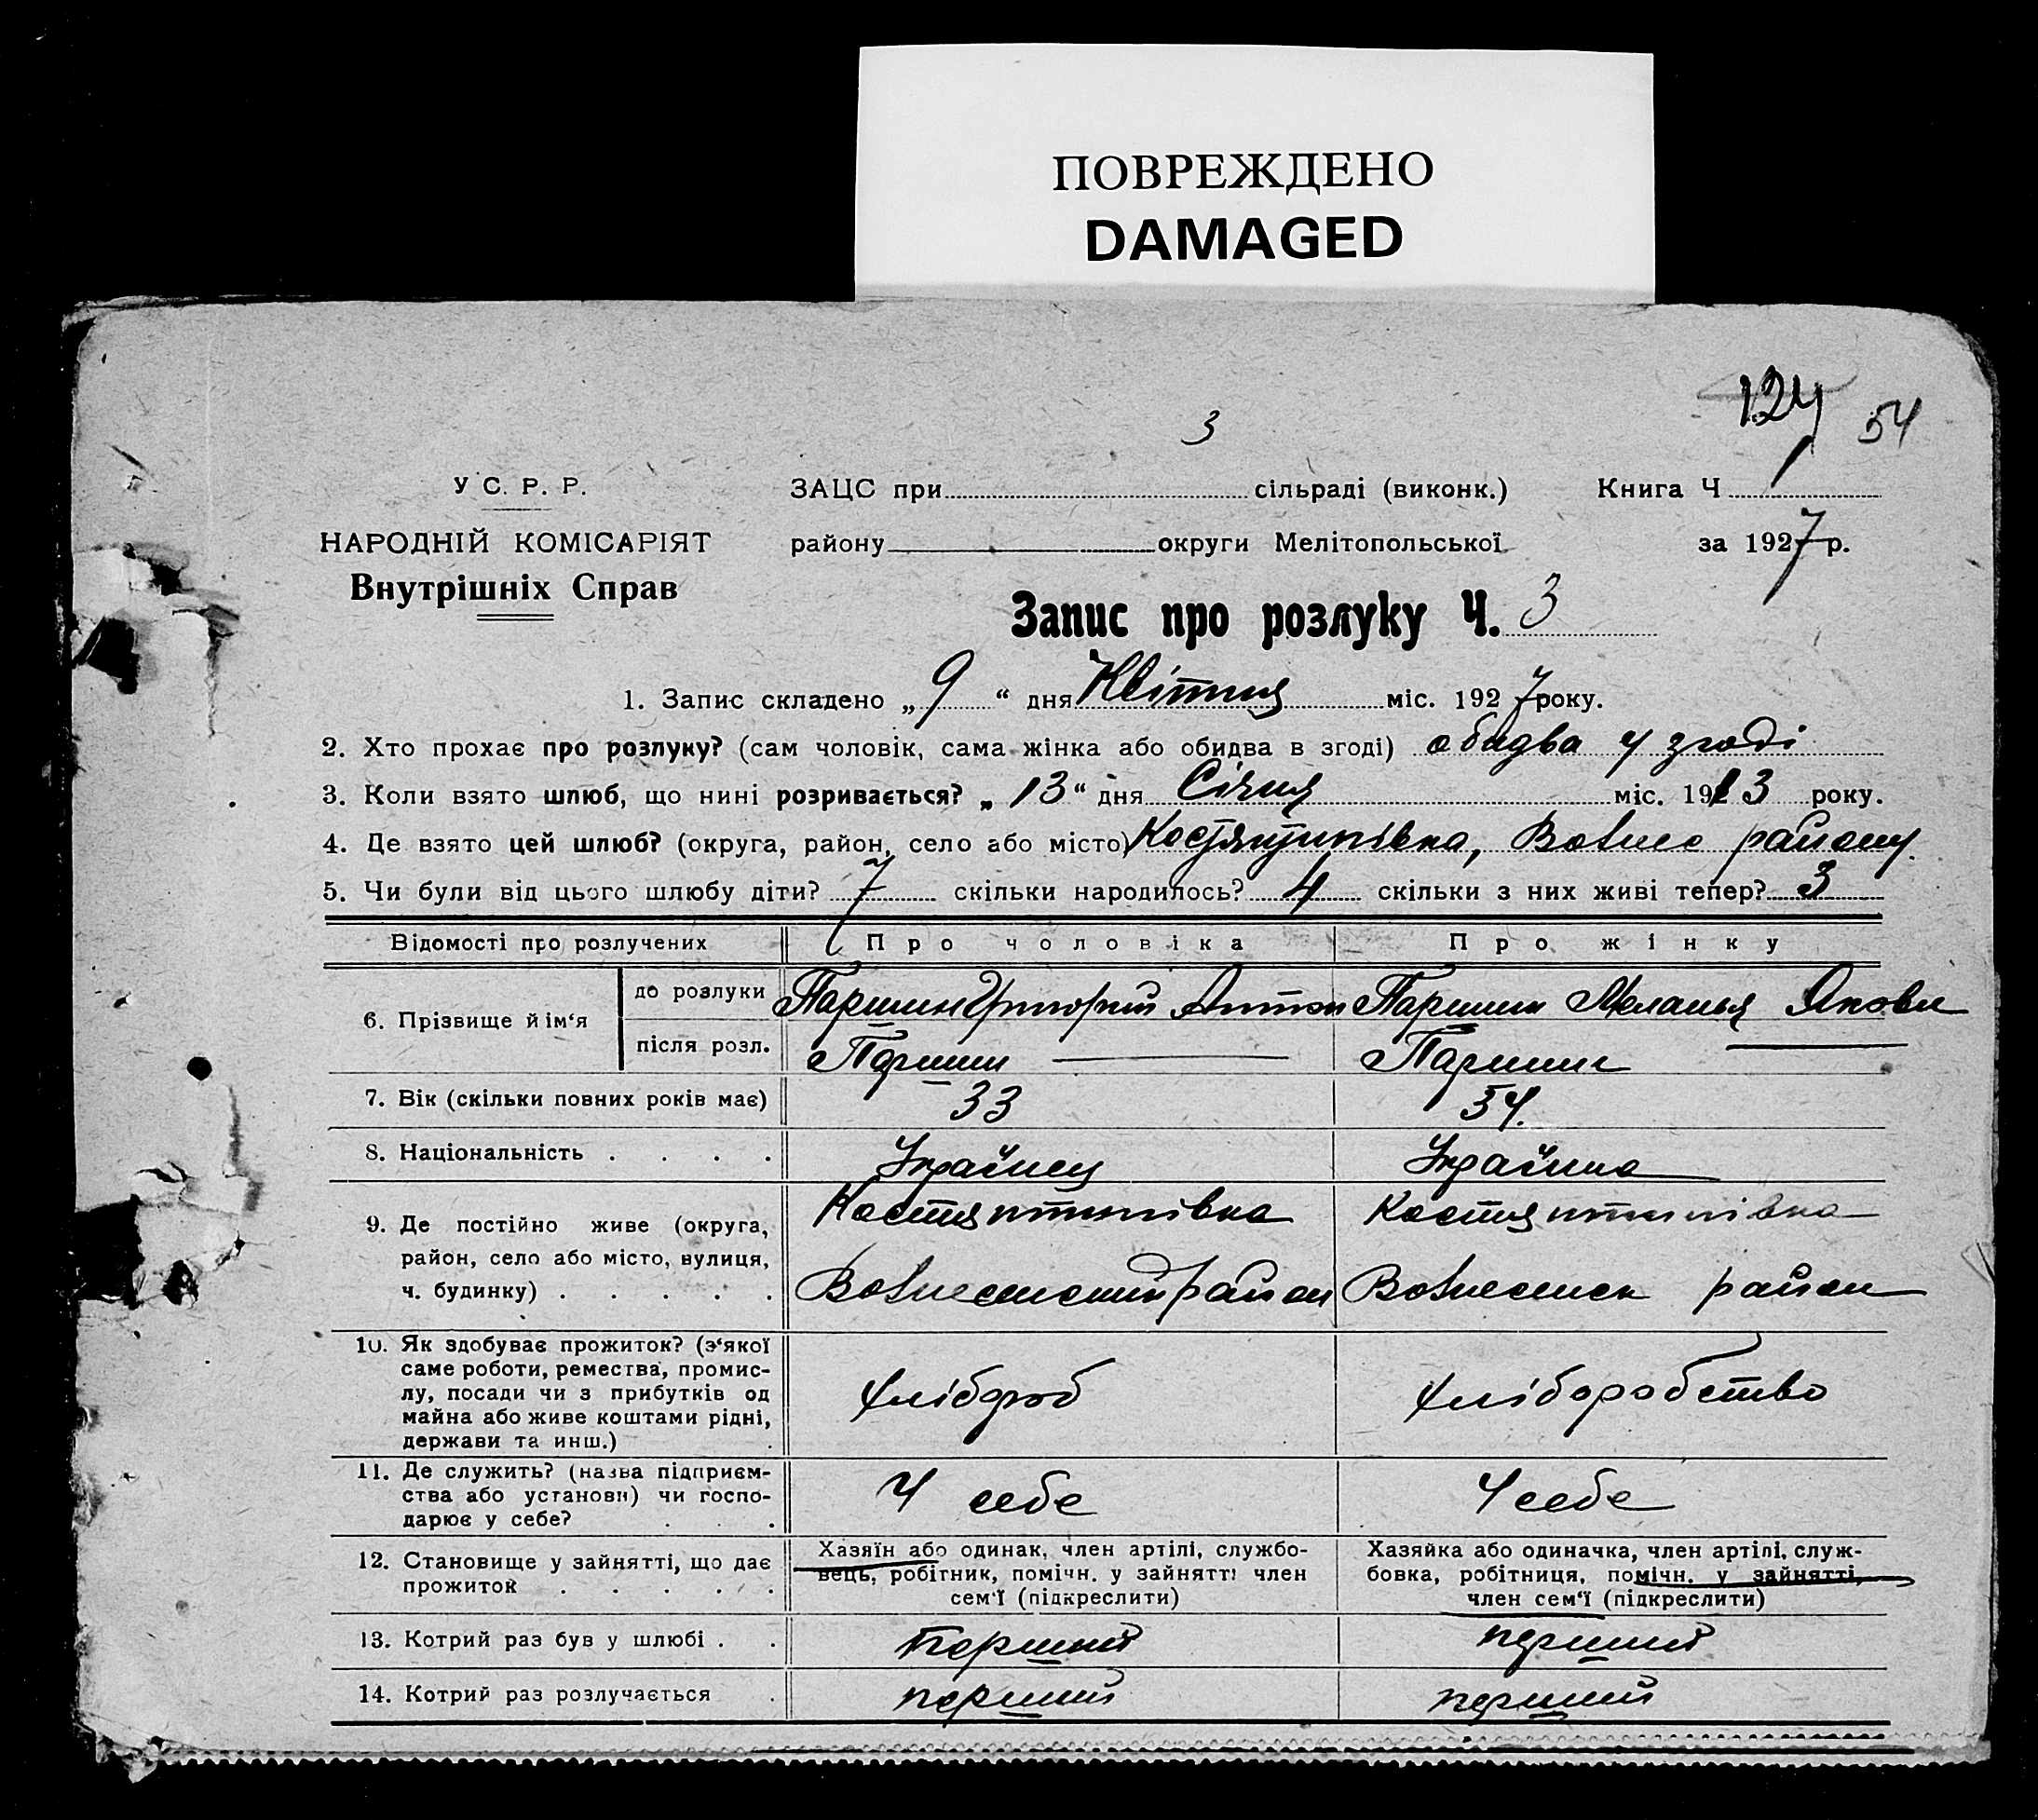 ПОВРЕЖДЕНО
DAMAGED
124 54
3
У С. Р. Р. ЗАЦС при сільраді (виконк.) Книга Ч 1
НАРОДНІЙ КОМІСАРІЯТ району округи Мелітопольської за 1927 р.
Внутрішніх Справ
Запис про розлуку Ч. 3
1. Запис складено „ 9 “ дня Квітня міс. 1927 року.
2. Хто прохає про розлуку? (сам чоловік, сама жінка або обидва в згоді) обидва у згоді
3. Коли взято шлюб, що нині розривається? „ 13 “ дня Січня міс. 1913 року.
4. Де взято цей шлюб? (округа, район, село або місто) Костянтинівка, Вознес району.
5. Чи були від цього шлюбу діти? 7 скільки народилось? 4 скільки з них живі тепер? 3
Відомості про розлучених Про чоловіка Про жінку
6. Прізвище й ім‘я до розлуки Паршин Григорій Антон Паршин Меланья Яковл
після розл. Паршин Паршин
7. Вік (скільки повних років має) 33 34.
8. Національність . . . . Українец Українка
9. Де постійно живе (округа, район, село або місто, вулиця, ч. будинку) . . . . . Костянтинівка Костянтинівка
Вознесенский район Вознесенск район
10. Як здобуває прожиток? (з‘якої
саме роботи, ремества, промис-
лу, посади чи з прибутків од хлібороб хліборобство
майна або живе коштами рідні,
держави та инш.) .
11. Де служить? (назва підприєм-
ства або установи) чи госпо- У себе У себе
дарює у себе? . . .
12. Становище у зайнятті, що дає прожиток . . . . . Хазяїн або одинак, член артілі, службо- Хазяйка або одиначка, член артілі, служ-
вець, робітник, помічн. у зайнятті член бовка, робітниця, помічн. у зайнятті,
сем‘ї (підкреслити) член сем‘ї (підкреслити)
13. Котрий раз був у шлюбі . . Перший перший
14. Котрий раз розлучається . перший перший